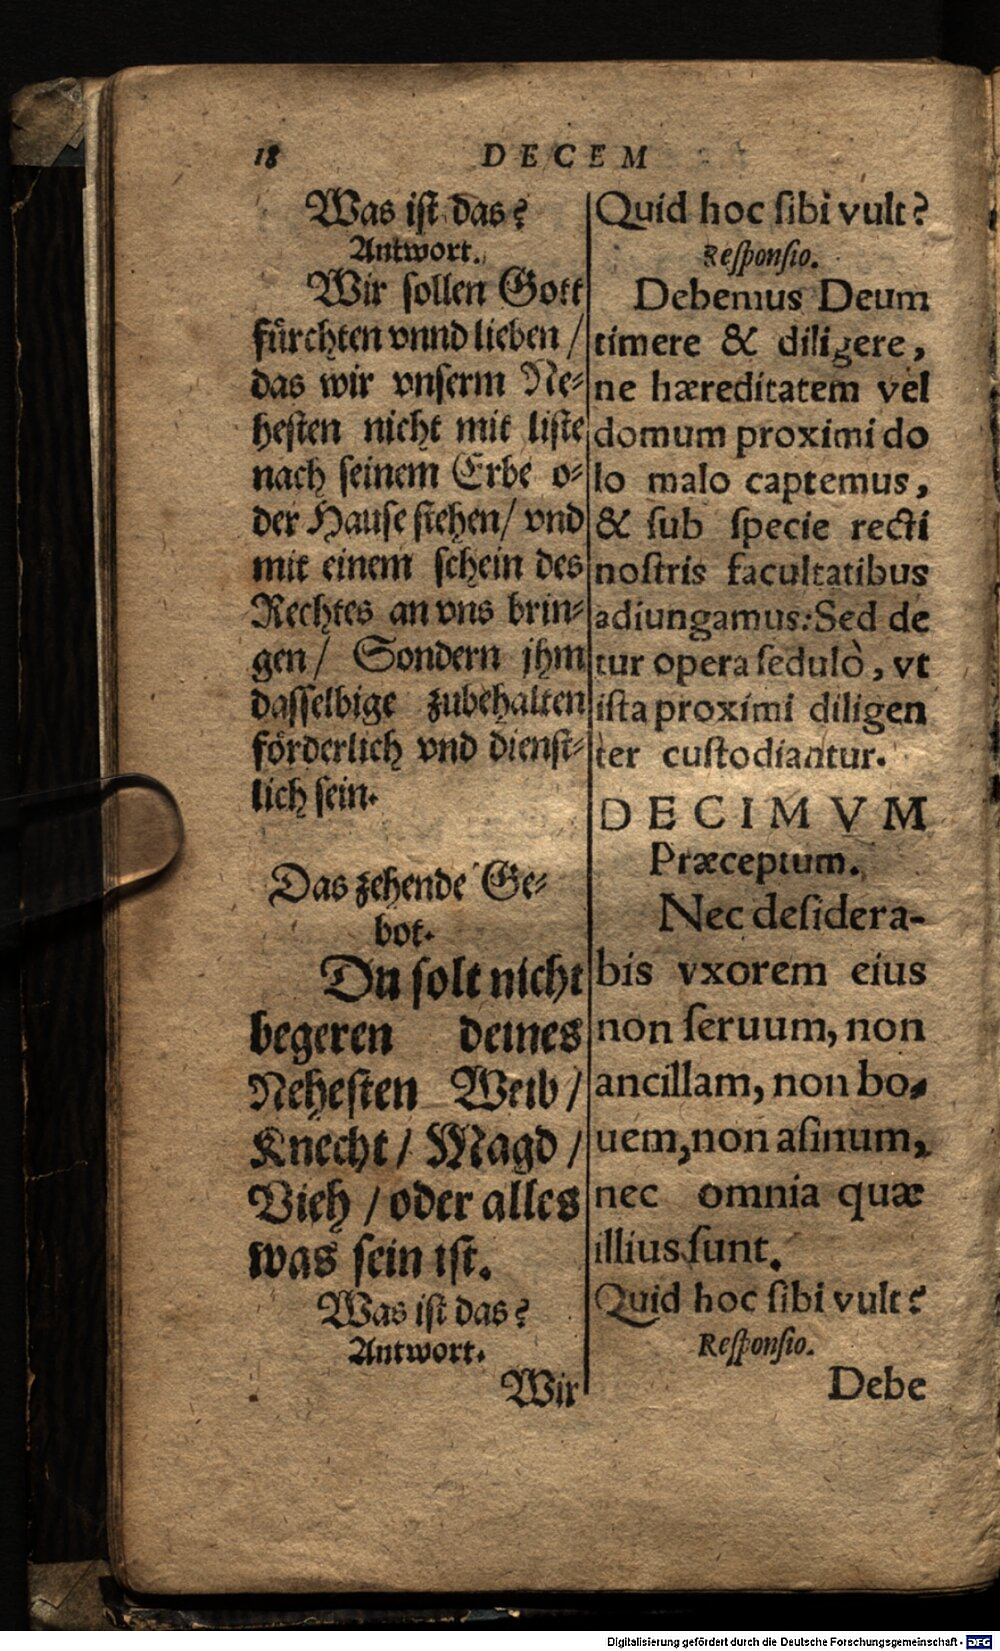 18
DECEM
Was ist das?
Antwort.
Wir sollen Gott
fürchten vnnd lieben /
das wir vnserm Ne⸗
hesten nicht mit liste
nach seinem Erbe o⸗
der Hause stehen / vnd
mit einem schein des
Rechtes an vns brin⸗
gen / Sondern jhm
dasselbige zubehalten
förderlich vnd dienst⸗
lich sein.
Das zehende Ge⸗
bot.
Du solt nicht
begeren deines
Nehesten Weib /
Knecht / Magd /
Vieh / oder alles
was sein ist.
Was ist das?
Antwort.
Wir
Quid hoc ſibi vult?
Reſponſio.
Debemus Deum
timere & diligere,
ne hæreditatem vel
domum proximi do
lo malo captemus,
& ſub ſpecie recti
noſtris facultatibus
adiungamus: Sed de
tur opera ſedulò, vt
iſta proximi diligen
ter cuſtodiantur.
DECIMVM
Præceptum.
Nec deſidera-
bis vxorem eius
non ſeruum, non
ancillam, non bo-
uem, non aſinum,
nec omnia quæ
illius ſunt.
Quid hoc ſibi vult?
Reſponſio.
Debe
Digitalisierung gefördert durch die Deutsche Forschungsgemeinschaft - DFG